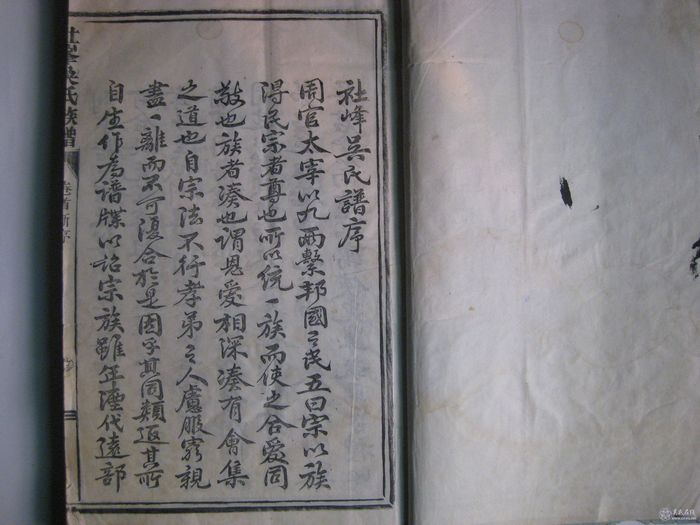 社峰吴氏譜序
周官太宰以九两繫邦國之民五曰宗以族
得民宗者尊也所以统一族而使之合爱同
敬也族者凑也谓恩爱相深凑有會集
之道也自宗法不行孝弟之人慮服窮親
盡一離而不可復合於是因乎其同類返其所
自生作為谱牒以詒宗族雖年湮代遠部
吴氏族譜
卷首新序